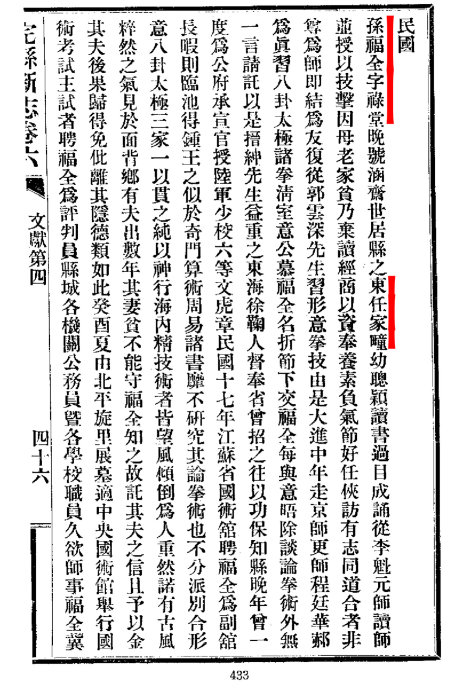 民國
孫福全字祿堂晚號涵齋世居縣之東任家疃幼聰穎讀書過目成誦從李魁元師讀師
並授以技擊因母老家貧乃棄讀經商以資奉養素負氣節好任俠訪有志同道合者非
尊爲師即結爲友復從郭雲深先生習形意拳技由是大進中年走京師更師程廷華郝
爲眞習八卦太極諸拳淸室意公慕福全名折節下交福全每與意晤除談論拳術外無
一言請託以是搢紳先生益重之東海徐鞠人督奉省曾招之往以功保知縣晚年曾一
度爲公府承宣官授陸軍少校六等文虎章民國十七年江蘇省國術舘聘福全爲副舘
長暇則臨池得鍾王之似於奇門算術周易諸書靡不研究其論拳術也不分派別合形
意八卦太極三家一以貫之純以神行海內精技術者皆望風傾倒爲人重然諾有古風
粹然之氣見於面背鄉有夫出數年其妻貧不能守福全知之故託其夫之信且予以金
其夫後果歸得免仳離其隱德類如此癸酉夏由北平旋里展墓適中央國術館舉行國
術考試主試者聘福全爲評判員縣城各機關公務員曁各學校職員久欲師事福全冀
完縣新志卷六
文獻第四
四十六
433